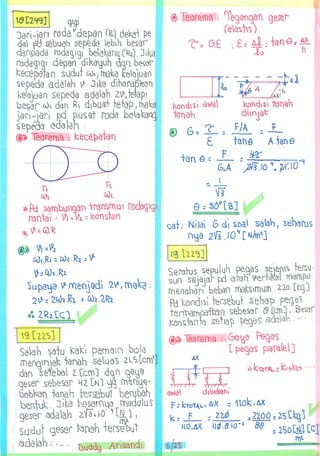 18 [249]
gigi
Jari-jari roda depan (R₁) dekat pe
dal pd sebuah sepeda lebih besar
daripada rodagigi belakang (R₂). Jika
rodagigi depan dikayuh dgn besar
kecepatan sudut ω₁, maka kelajuan
sepeda adalah v. Jika diharapkan
kelajuan sepeda adalah 2v, tetapi
besar ω₁ dan R₁ dibuat tetap, maka
jari-jari pd pusat roda belakang
sepeda adalah :
Teorema : kecepatan
r₁ r₂
ω₁ ω₂
Pd sambungan transmisi rodagigi
rantai : V₁ = V₂ = konstan
V = ω.R
V₁ = V₂
ω₁.R₁ = ω₂.R₂ = V
V = ω₂.R₂
Supaya V menjadi 2V, maka :
2V = 2ω₂.R₂ = ω₂.2R₂
∴ 2R₂ [C]
19 [225]
Salah satu kaki pemain bola
menginjak tanah seluas 2√3 [cm²]
dan setebal 2 [cm] dgn gaya
geser sebesar 42 [N] yg menye-
babkan tanah tersebut berubah
bentuk. Jika besarnya modulus
geser adalah
Sudut geser tanah tersebut
adalah : ...
Buddy Arisandi
Teorema : Tegangan geser
(elastis).
kondisi awal kondisi tanah
tanah diinjak
F A h
= F/A = F
tan θ A.tan θ
tan θ = F
G.A
= 1
√3
θ = 30° [B]
cat : Nilai G di soal salah, seharus
nya 2√3.10⁴ [N/m²]
19 [229]
Seratus sepuluh pegas sejenis tersu-
sun sejajar pd arah vertikal mampu
menahan beban maksimum 220 [kg]
Pd kondisi tersebut setiap pegas
termampatkan sebesar 8 [cm]. Besar
konstanta setiap pegas adalah ...
Teorema : Gaya Pegas
[pegas paralel]
ΔX
awal dibebani
F = k total . ΔX = 110k.ΔX
k = F = 220 = 2200 = 25 [kg]
110.ΔX 110.8.10⁻² 88
= 250 [N] [C]
6/25